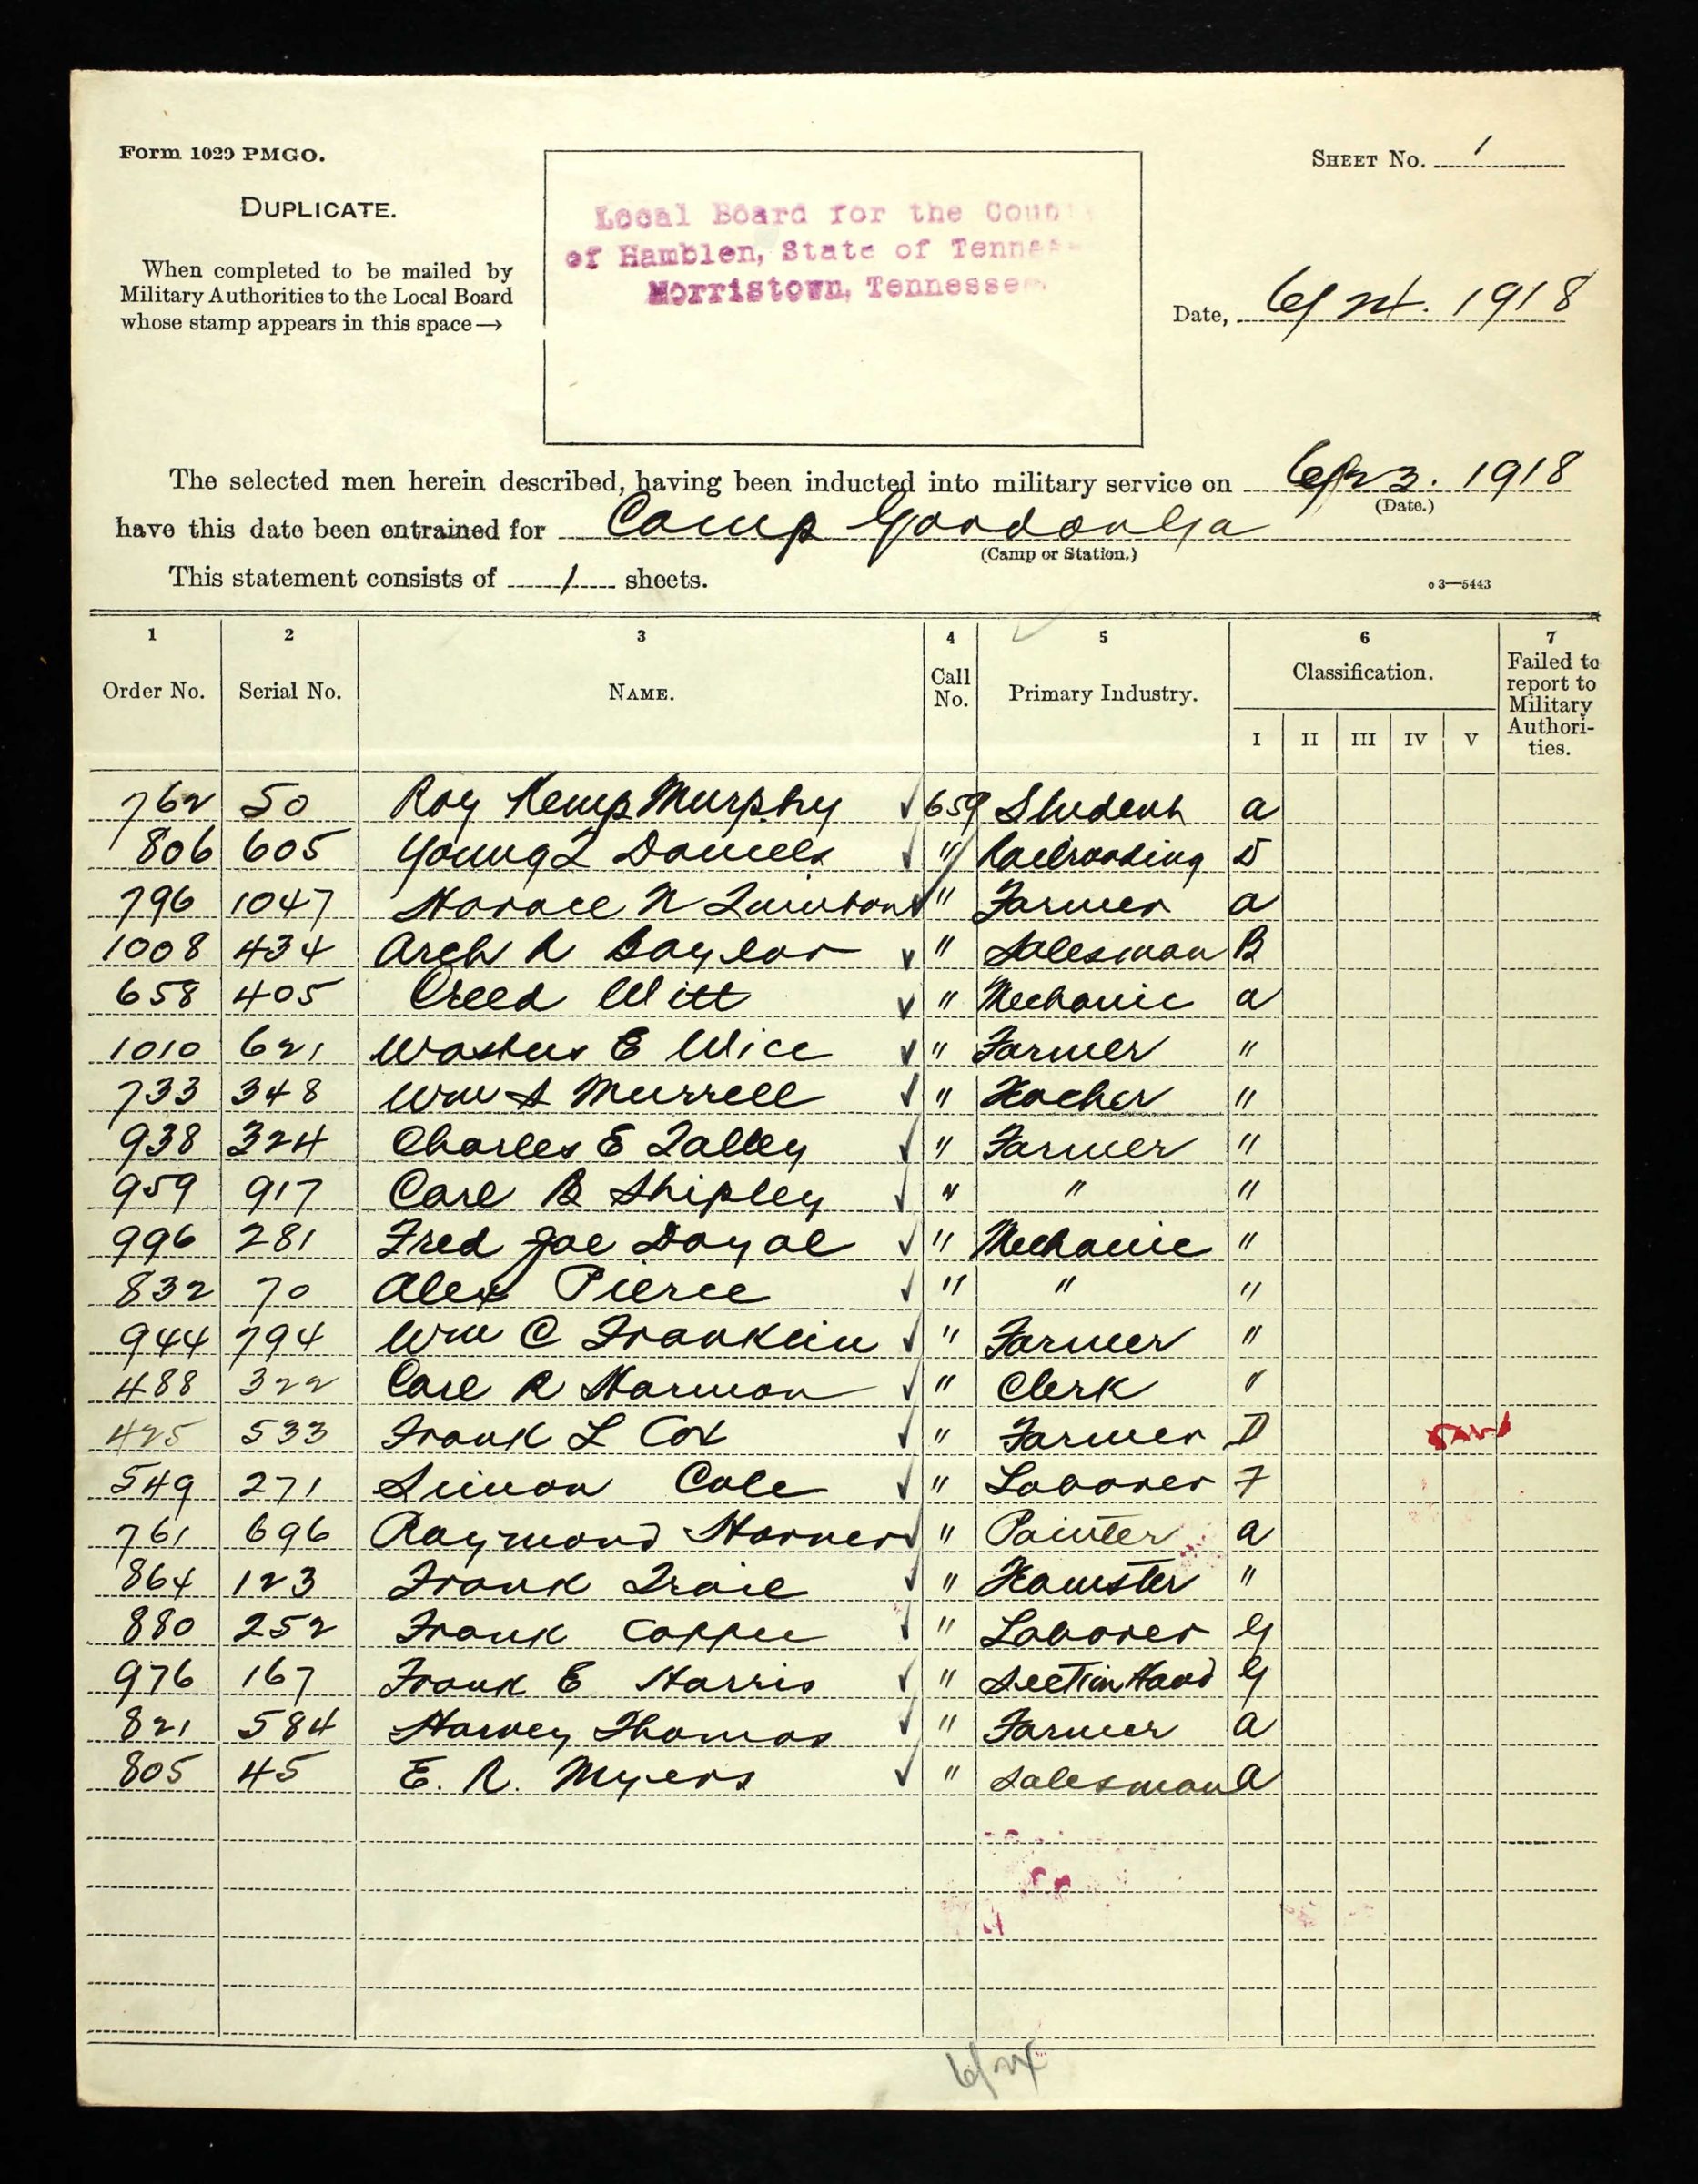 Form 1029 PMGO.
SHEET No. 1
DUPLICATE.
When completed to be mailed by
Military Authorities to the Local Board
whose stamp appears in this space→
Local Board for the Coun
of Hamblen, State of Tennes
Morristown, Tennessee
Date, 6/24. 1918
The selected men herein described, having been inducted into military service on 6/23. 1918
(Date.)
have this date been entrained for Camp Gordon Ga
(Camp or Station.)
This statement consists of 1 sheets.
3—5443
1 2 3 4 5 6 7
Order No. Serial No. NAME. Call No. Primary Industry. Classification. Failed to report to Military Authorities.
I II III IV V
762 50 Roy Kemp Murphy ✓ 659 Student a
806 605 Young L Daniels ✓ " Railroading D
796 1047 Horace N ✓ " Farmer a
1008 434 Arch R Baylor ✓ " Salesman B
658 405 Creed Witt ✓ " Mechanic a
1010 621 E Wice ✓ " Farmer "
733 348 Wm A Murrell ✓ " "
938 324 Charles E Talley ✓ " Farmer "
959 917 Carl B Shipley ✓ " " "
996 281 Fred Joe ✓ " Mechanic "
832 70 Alex Pierce ✓ " " "
944 794 Wm C Franklin ✓ " Farmer "
488 322 Carl R Harmon ✓ " Clerk "
425 533 Frank L Cox ✓ " Farmer D
549 271 Simon Cole ✓ " Laborer F
761 696 Raymond Horner ✓ " Painter a
864 123 Frank ✓ " "
880 252 Frank ✓ " Laborer G
976 167 Frank E Harris ✓ " Section Hand G
821 584 Harvey Thomas ✓ " Farmer a
805 45 E. R. Myers ✓ " Salesman a
6/24